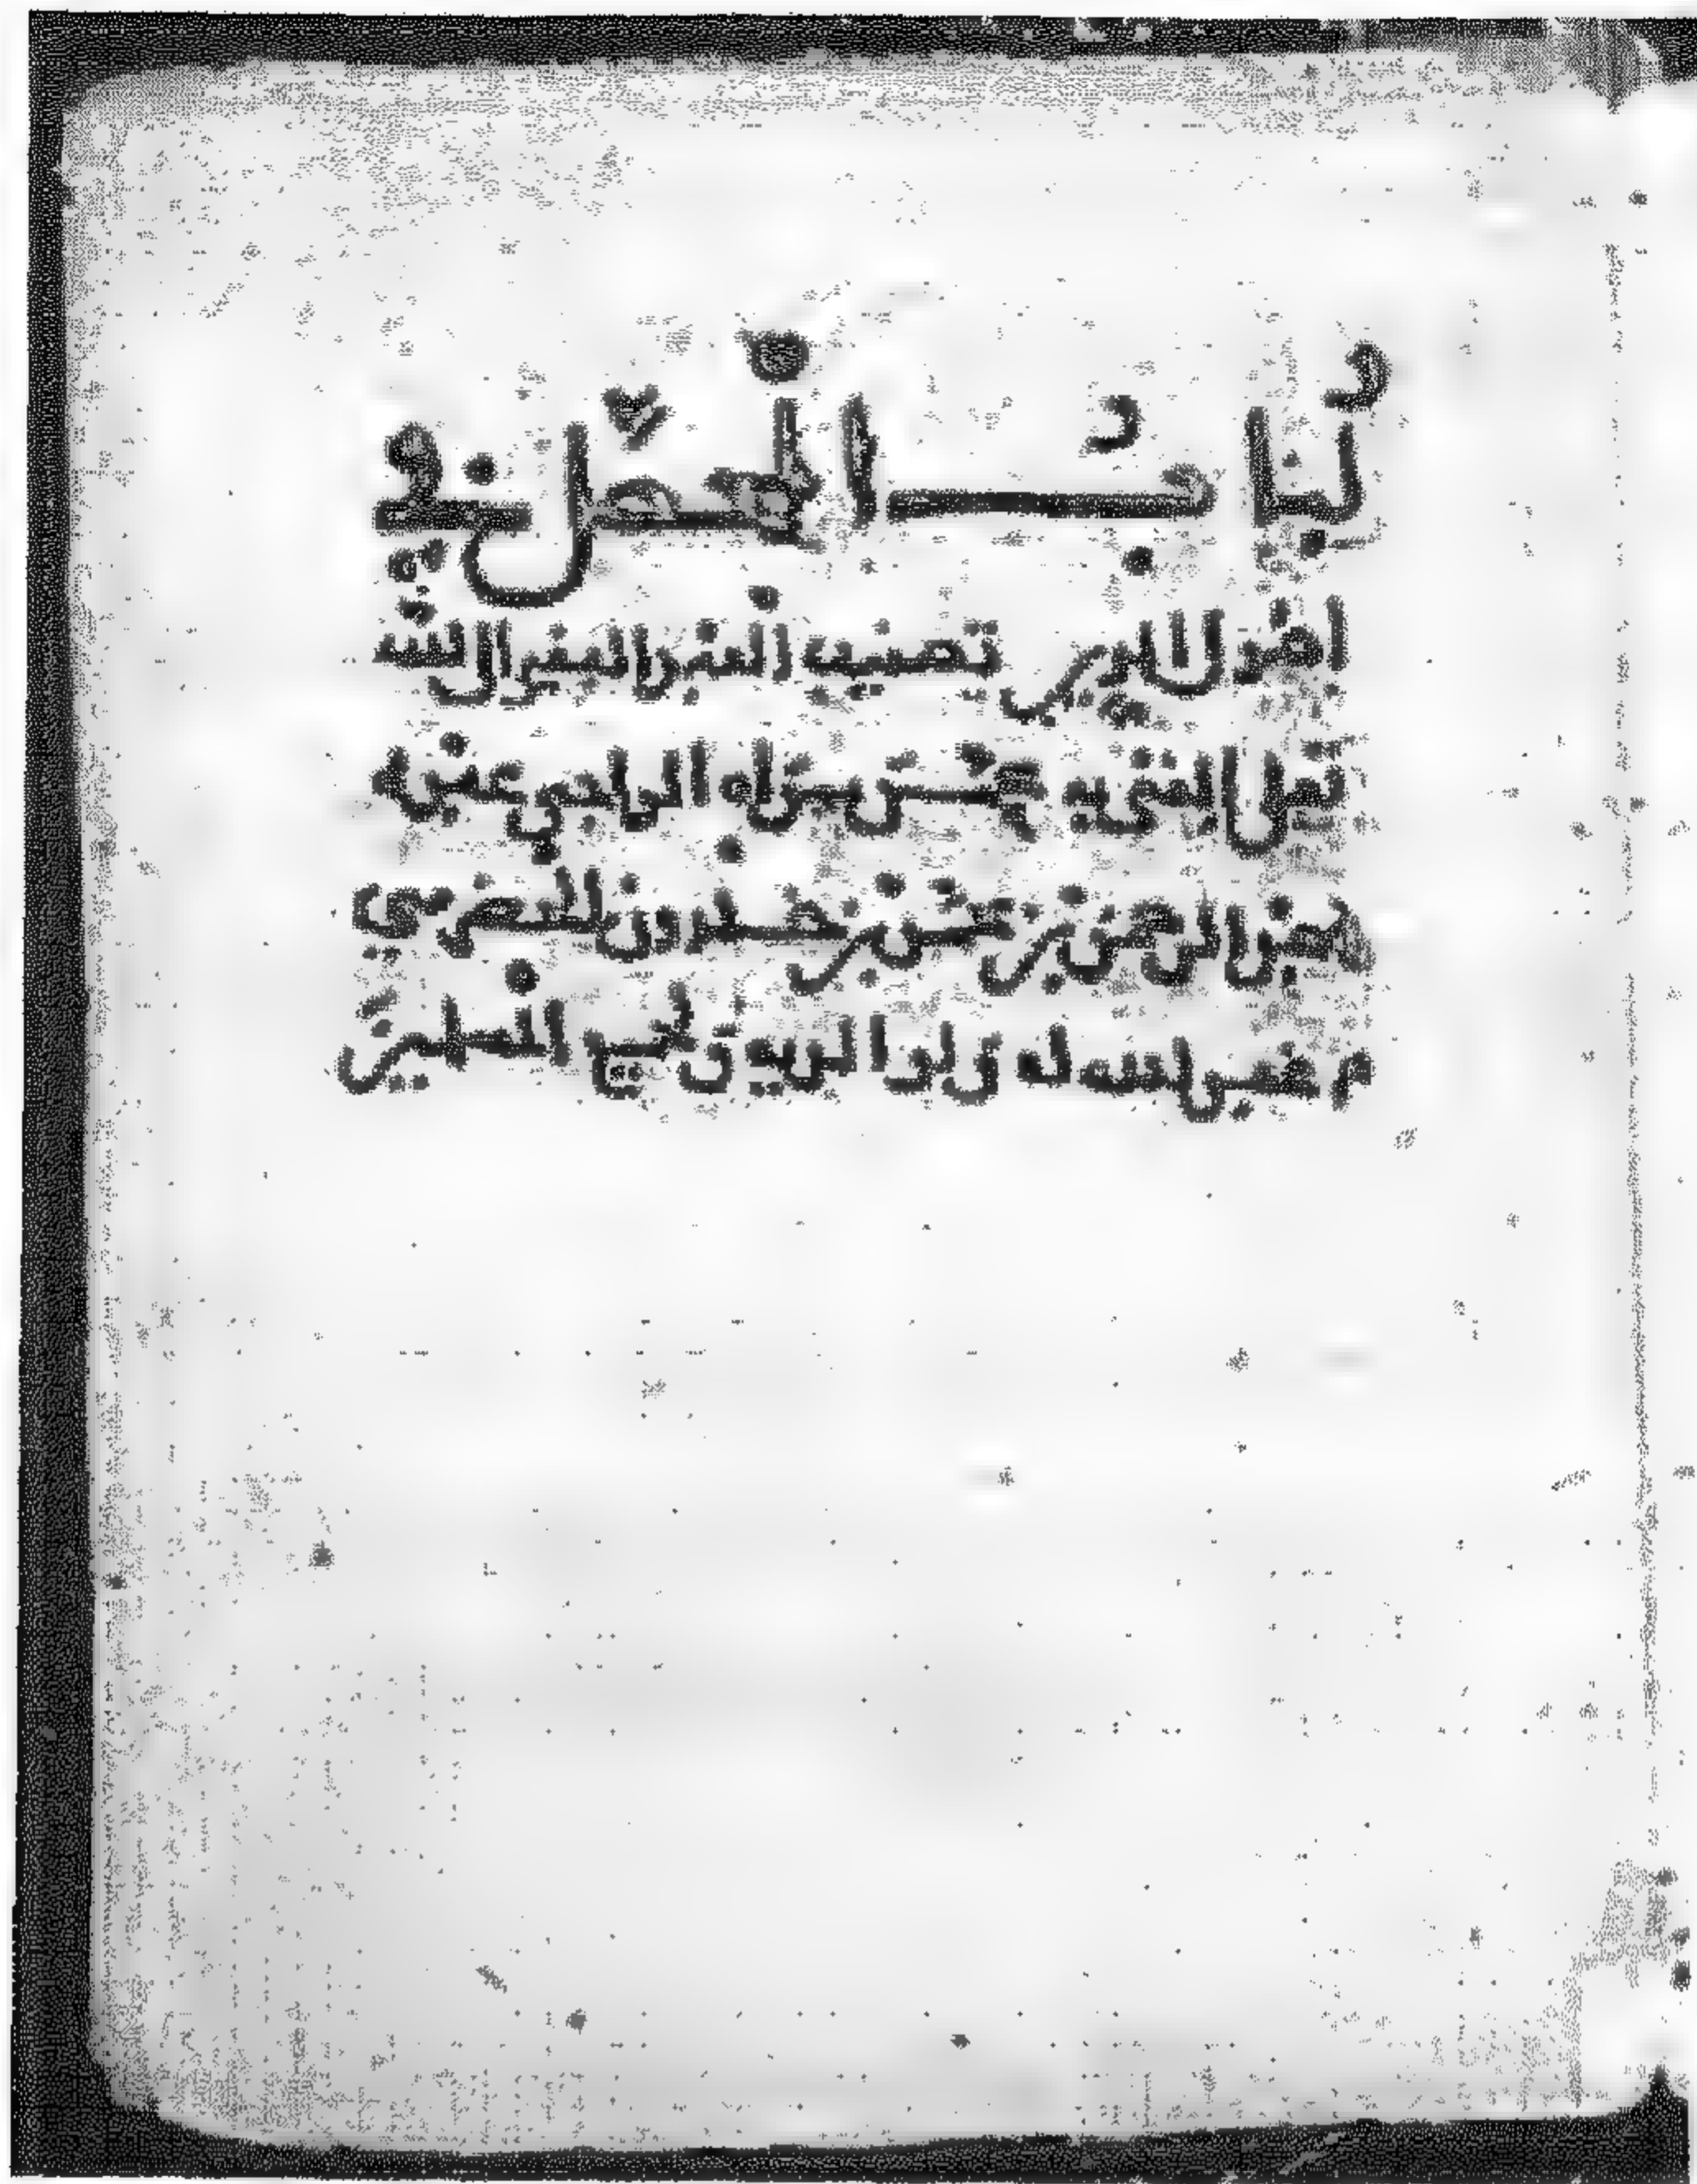 كتاب المحصل في
اصول الدين تصنيف الفقير الى الله
تعلى الغني به عمن سواه الراجي عفوه
عبد الرحمن بن محمد بن خلدون الحضرمي
غفر الله له ولوالديه ولجميع المسلمين